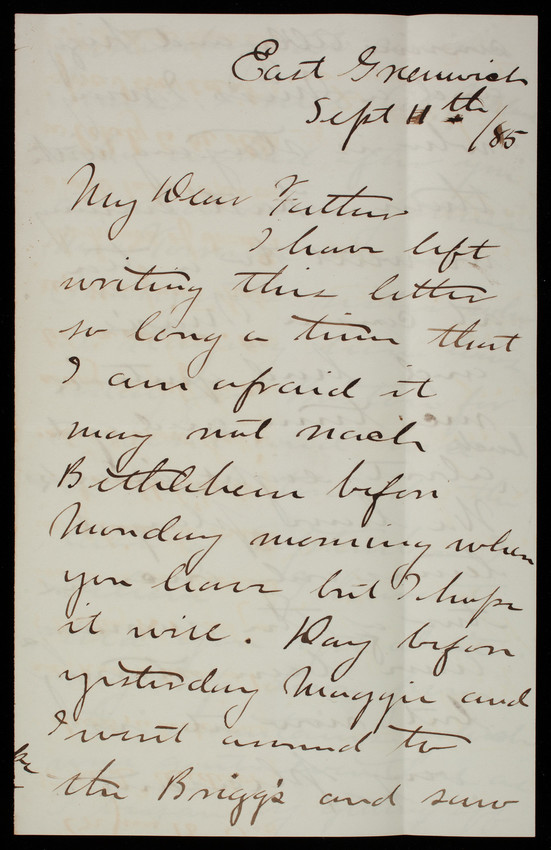 East Greenwich
Sept 11th /85
My Dear Father
I have left
writing this letter
so long a time that
I am afraid it
may not reach
Bethlehem before
Monday morning when
you leave but I hope
it will. Day before
yesterday Maggie and
I went around to
the Briggs and saw